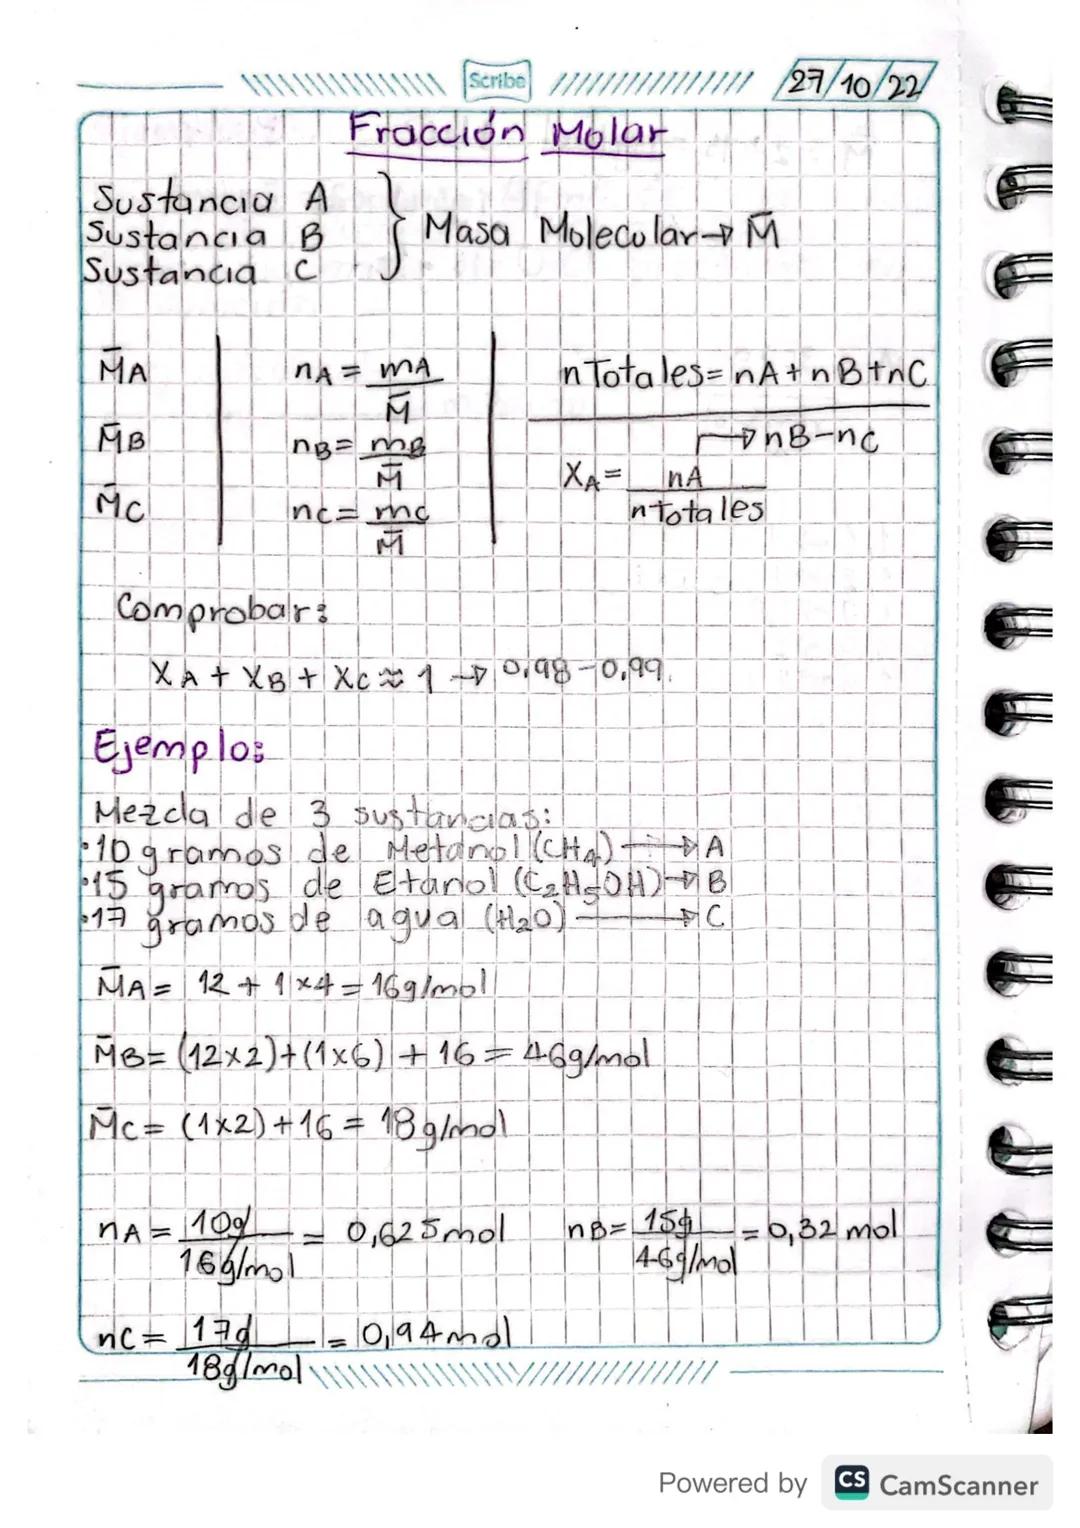 Scribe
27/10/22
Fracción Molar
Sustancia A
Sustancia B
Sustancia C
Masa Molecular → M̄
M̄A
nA = mA / M̄
n Totales = nA + nB + nC
M̄B
nB = mB / M̄
→ nB - nC
XA = nA / n totales
M̄C
nC = mC / M̄
Comprobar:
XA + XB + XC ≈ 1 → 0,98 - 0,99.
Ejemplo:
Mezcla de 3 sustancias:
• 10 gramos de Metanol (CH4) → A
• 15 gramos de Etanol (C2H5OH) → B
• 17 gramos de agua (H2O) → C
M̄A = 12 + 1x4 = 16g/mol
M̄B = (12x2) + (1x6) + 16 = 46g/mol
M̄C = (1x2) + 16 = 18g/mol
nA = 10g / 16g/mol = 0,625mol
nB = 15g / 46g/mol = 0,32 mol
nC = 17g / 18g/mol = 0,94mol
Powered by CS CamScanner